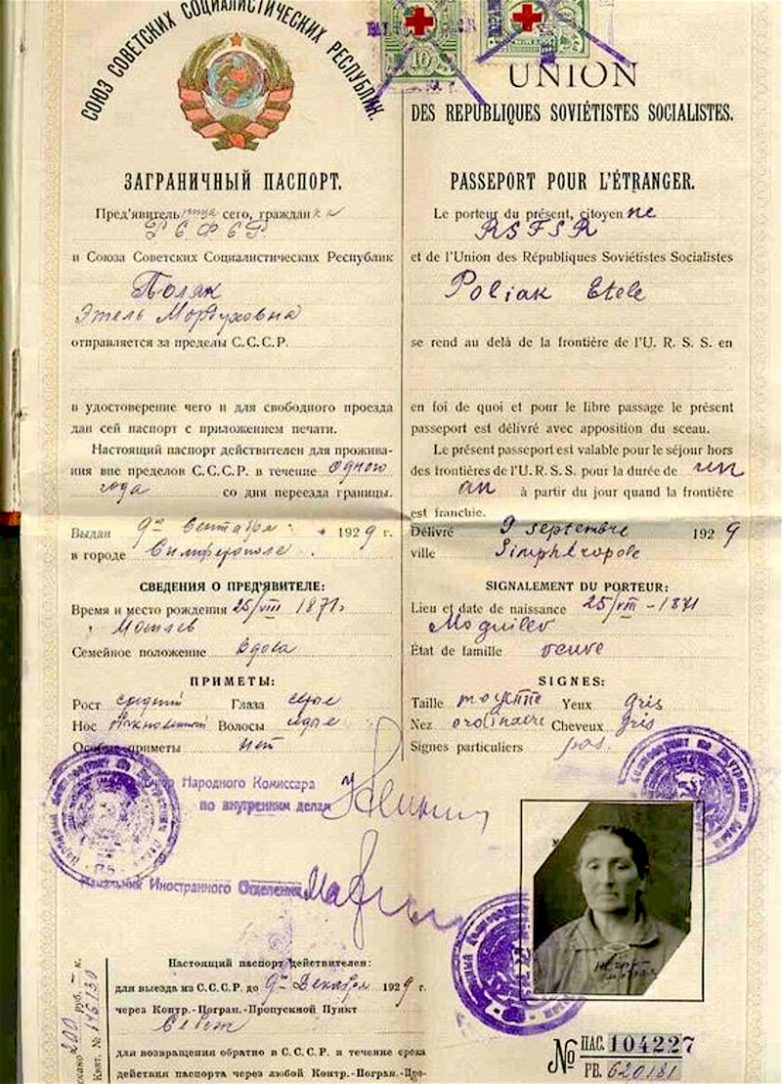 СОЮЗ СОВЕТСКИХ СОЦИАЛИСТИЧЕСКИХ РЕСПУБЛИК.
ЗАГРАНИЧНЫЙ ПАСПОРТ.
Пред'явительница сего, гражданка
Р С Ф С Р
и Союза Советских Социалистических Республик
Поляк
Этель Мордуховна
отправляется за пределы С.С.С.Р.
в удостоверение чего и для свободного проезда
дан сей паспорт с приложением печати.
Настоящий паспорт действителен для прожива-
ния вне пределов С.С.С.Р. в течение одного
года со дня переезда границы.
Выдан 9го Сентября 1929 г.
в городе Симферополе
СВЕДЕНИЯ О ПРЕД'ЯВИТЕЛЕ:
Время и место рождения 25/VIII 1871г
Могилев
Семейное положение вдова
ПРИМЕТЫ:
Рост средний Глаза серые
Нос Волосы седые
Особые приметы нет
Народного Комиссара
по внутренним делам
Начальник Иностранного Отделения
Настоящий паспорт действителен:
для выезда из С.С.С.Р. до 9го Декабря 1929 г.
через Контр.-Погран.-Пропускной Пункт
для возвращения обратно в С.С.С.Р. в течение срока
действия паспорта через любой Контр.-Погран.-Про-
200 руб. — к.
Квит. № 146130
10
UNION
DES REPUBLIQUES SOVIÉTISTES SOCIALISTES.
PASSEPORT POUR L'ÉTRANGER.
Le porteur du présent, citoyenne
RSFSR
et de l'Union des Républiques Soviétistes Socialistes
Poliak Etele
se rend au delà de la frontière de l'U. R. S. S. en
en foi de quoi et pour le libre passage le présent
passeport est délivré avec apposition du sceau.
Le présent passeport est valable pour le séjour hors
des frontières de l'U.R.S.S. pour la durée de un
an à partir du jour quand la frontière
est franchie.
Délivré 9 septembre 1929
ville Simphéropole
SIGNALEMENT DU PORTEUR:
Lieu et date de naissance 25/VIII - 1871
Moguilev
État de famille veuve
SIGNES:
Taille moyenne Yeux gris
Nez ordinaire Cheveux gris
Signes particuliers pas.
№ ПАС. 104227
РВ. 620181